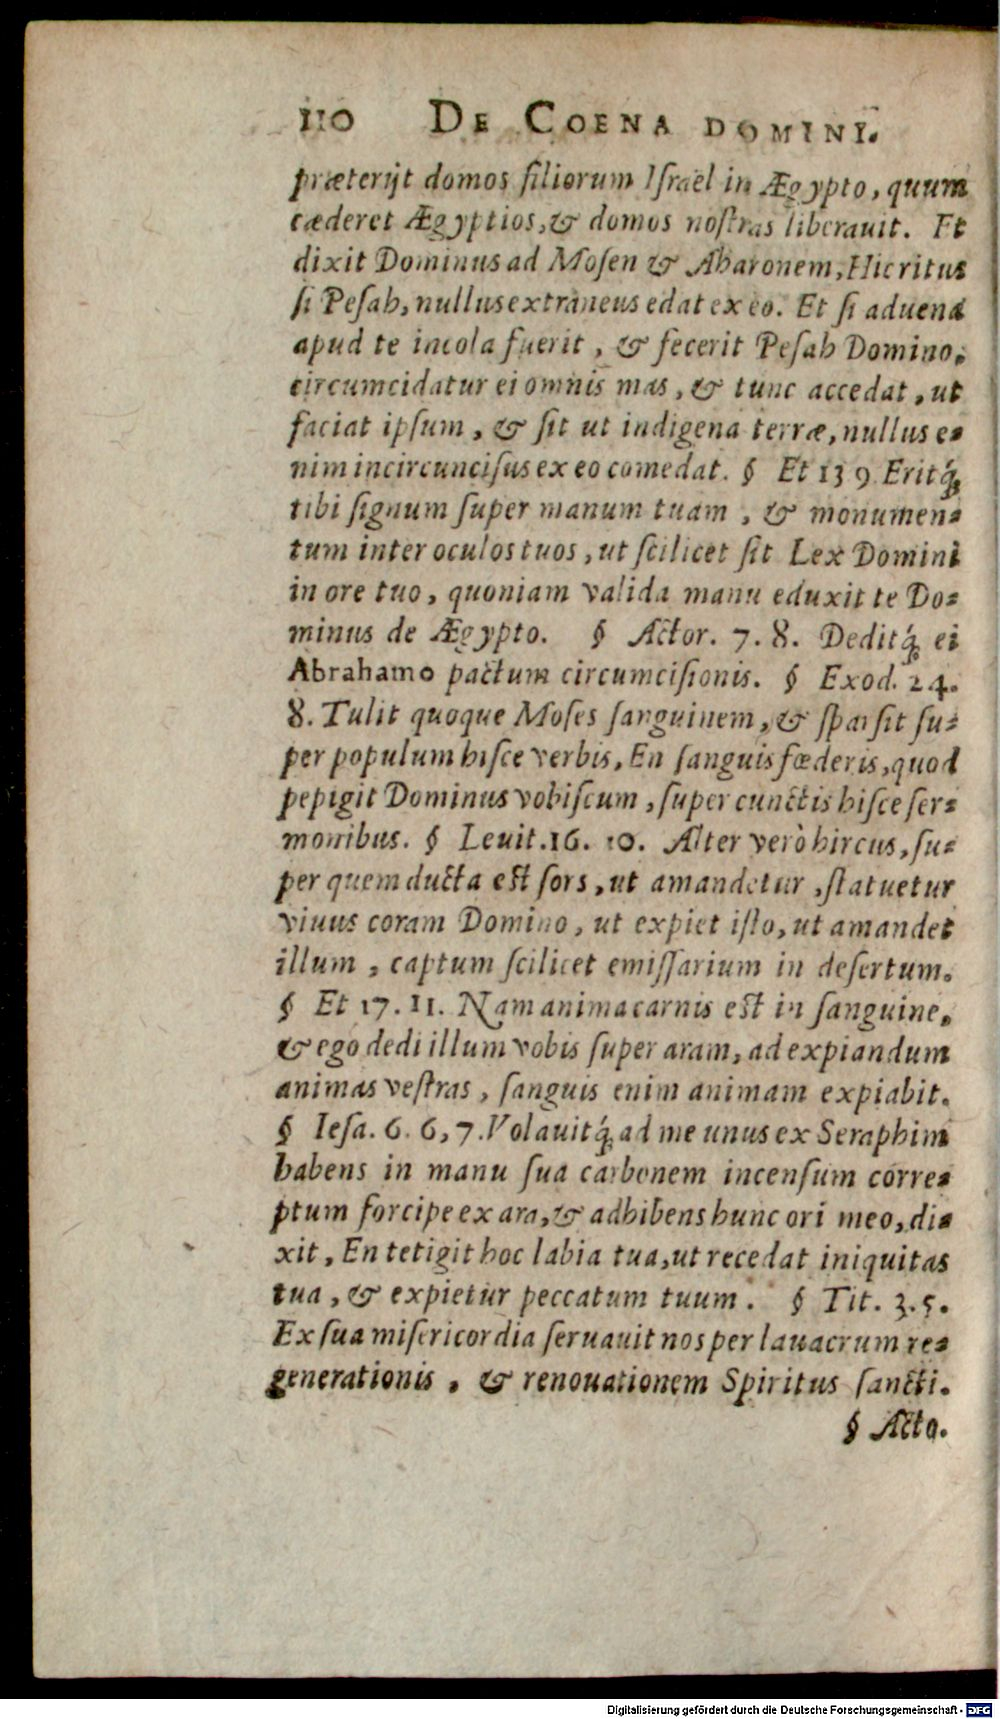 110 DE COENA DOMINI.
præterijt domos filiorum Iſrael in Ægypto, quum
cæderet Ægyptios, & domos noſtras liberauit. Et
dixit Dominus ad Moſen & Aharonem, Hic ritus
ſi Peſah, nullus extraneus edat ex eo. Et ſi aduena
apud te incola fuerit, & fecerit Peſah Domino,
circumcidatur ei omnis mas, & tunc accedat, ut
faciat ipſum, & ſit ut indigena terræ, nullus e-
nim incircunciſus ex eo comedat. § Et 13 9 Eritq́;
tibi ſignum ſuper manum tuam, & monumen-
tum inter oculos tuos, ut ſcilicet ſit Lex Domini
in ore tuo, quoniam valida manu eduxit te Do-
minus de Ægypto. § Actor. 7. 8. Deditq́; ei
Abrahamo pactum circumciſionis. § Exod. 24.
8. Tulit quoque Moſes ſanguinem, & ſparſit ſu-
per populum hiſce verbis, En ſanguis fœderis, quod
pepigit Dominus vobiſcum, ſuper cunctis hiſce ſer-
monibus. § Leuit. 16. 10. Alter verò hircus, ſu-
per quem ducta eſt ſors, ut amandetur, ſtatuetur
viuus coram Domino, ut expiet iſto, ut amandet
illum, captum ſcilicet emiſſarium in deſertum.
§ Et 17. 11. Nam anima carnis eſt in ſanguine,
& ego dedi illum vobis ſuper aram, ad expiandum
animas veſtras, ſanguis enim animam expiabit.
§ Ieſa. 6. 6, 7. Volauitq́; ad me unus ex Seraphim
habens in manu ſua carbonem incenſum corre-
ptum forcipe ex ara, & adhibens hunc ori meo, di-
xit, En tetigit hoc labia tua, ut recedat iniquitas
tua, & expietur peccatum tuum. § Tit. 3. 5.
Ex ſua miſericordia ſeruauit nos per lauacrum re-
generationis, & renouationem Spiritus ſancti.
§ Acto.
Digitalisierung gefördert durch die Deutsche Forschungsgemeinschaft - DFG